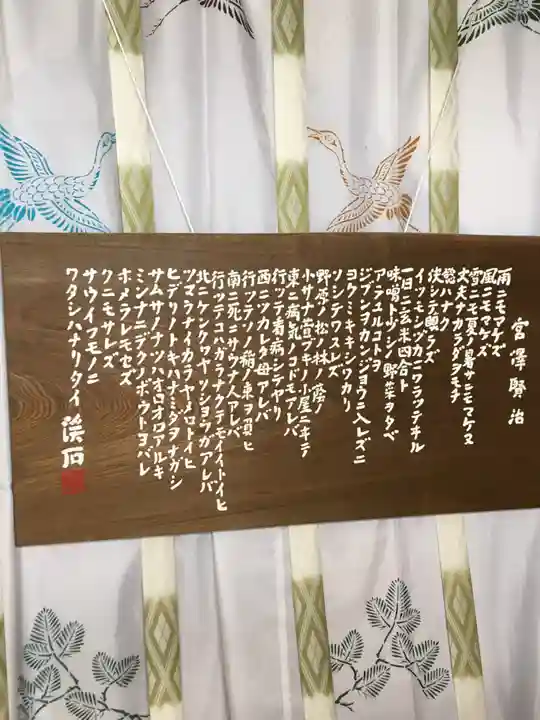 宮澤賢治
雨ニモマケズ
風ニモマケズ
雪ニモ夏ノ暑サニモマケヌ
丈夫ナカラダヲモチ
慾ハナク
決シテ瞋ラズ
イツモシヅカニワラッテヰル
一日ニ玄米四合ト
味噌ト少シノ野菜ヲタベ
アラユルコトヲ
ジブンヲカンジョウニ入レズニ
ヨクミキキシワカリ
ソシテワスレズ
野原ノ松ノ林ノ蔭ノ
小サナ萱ブキノ小屋ニヰテ
東ニ病気ノコドモアレバ
行ッテ看病シテヤリ
西ニツカレタ母アレバ
行ッテソノ稲ノ束ヲ負ヒ
南ニ死ニサウナ人アレバ
行ッテコハガラナクテモイイトイヒ
北ニケンクヮヤソショウガアレバ
ツマラナイカラヤメロトイヒ
ヒデリノトキハナミダヲナガシ
サムサノナツハオロオロアルキ
ミンナニデクノボウトヨバレ
ホメラレモセズ
クニモサレズ
サウイフモノニ
ワタシハナリタイ
渓石